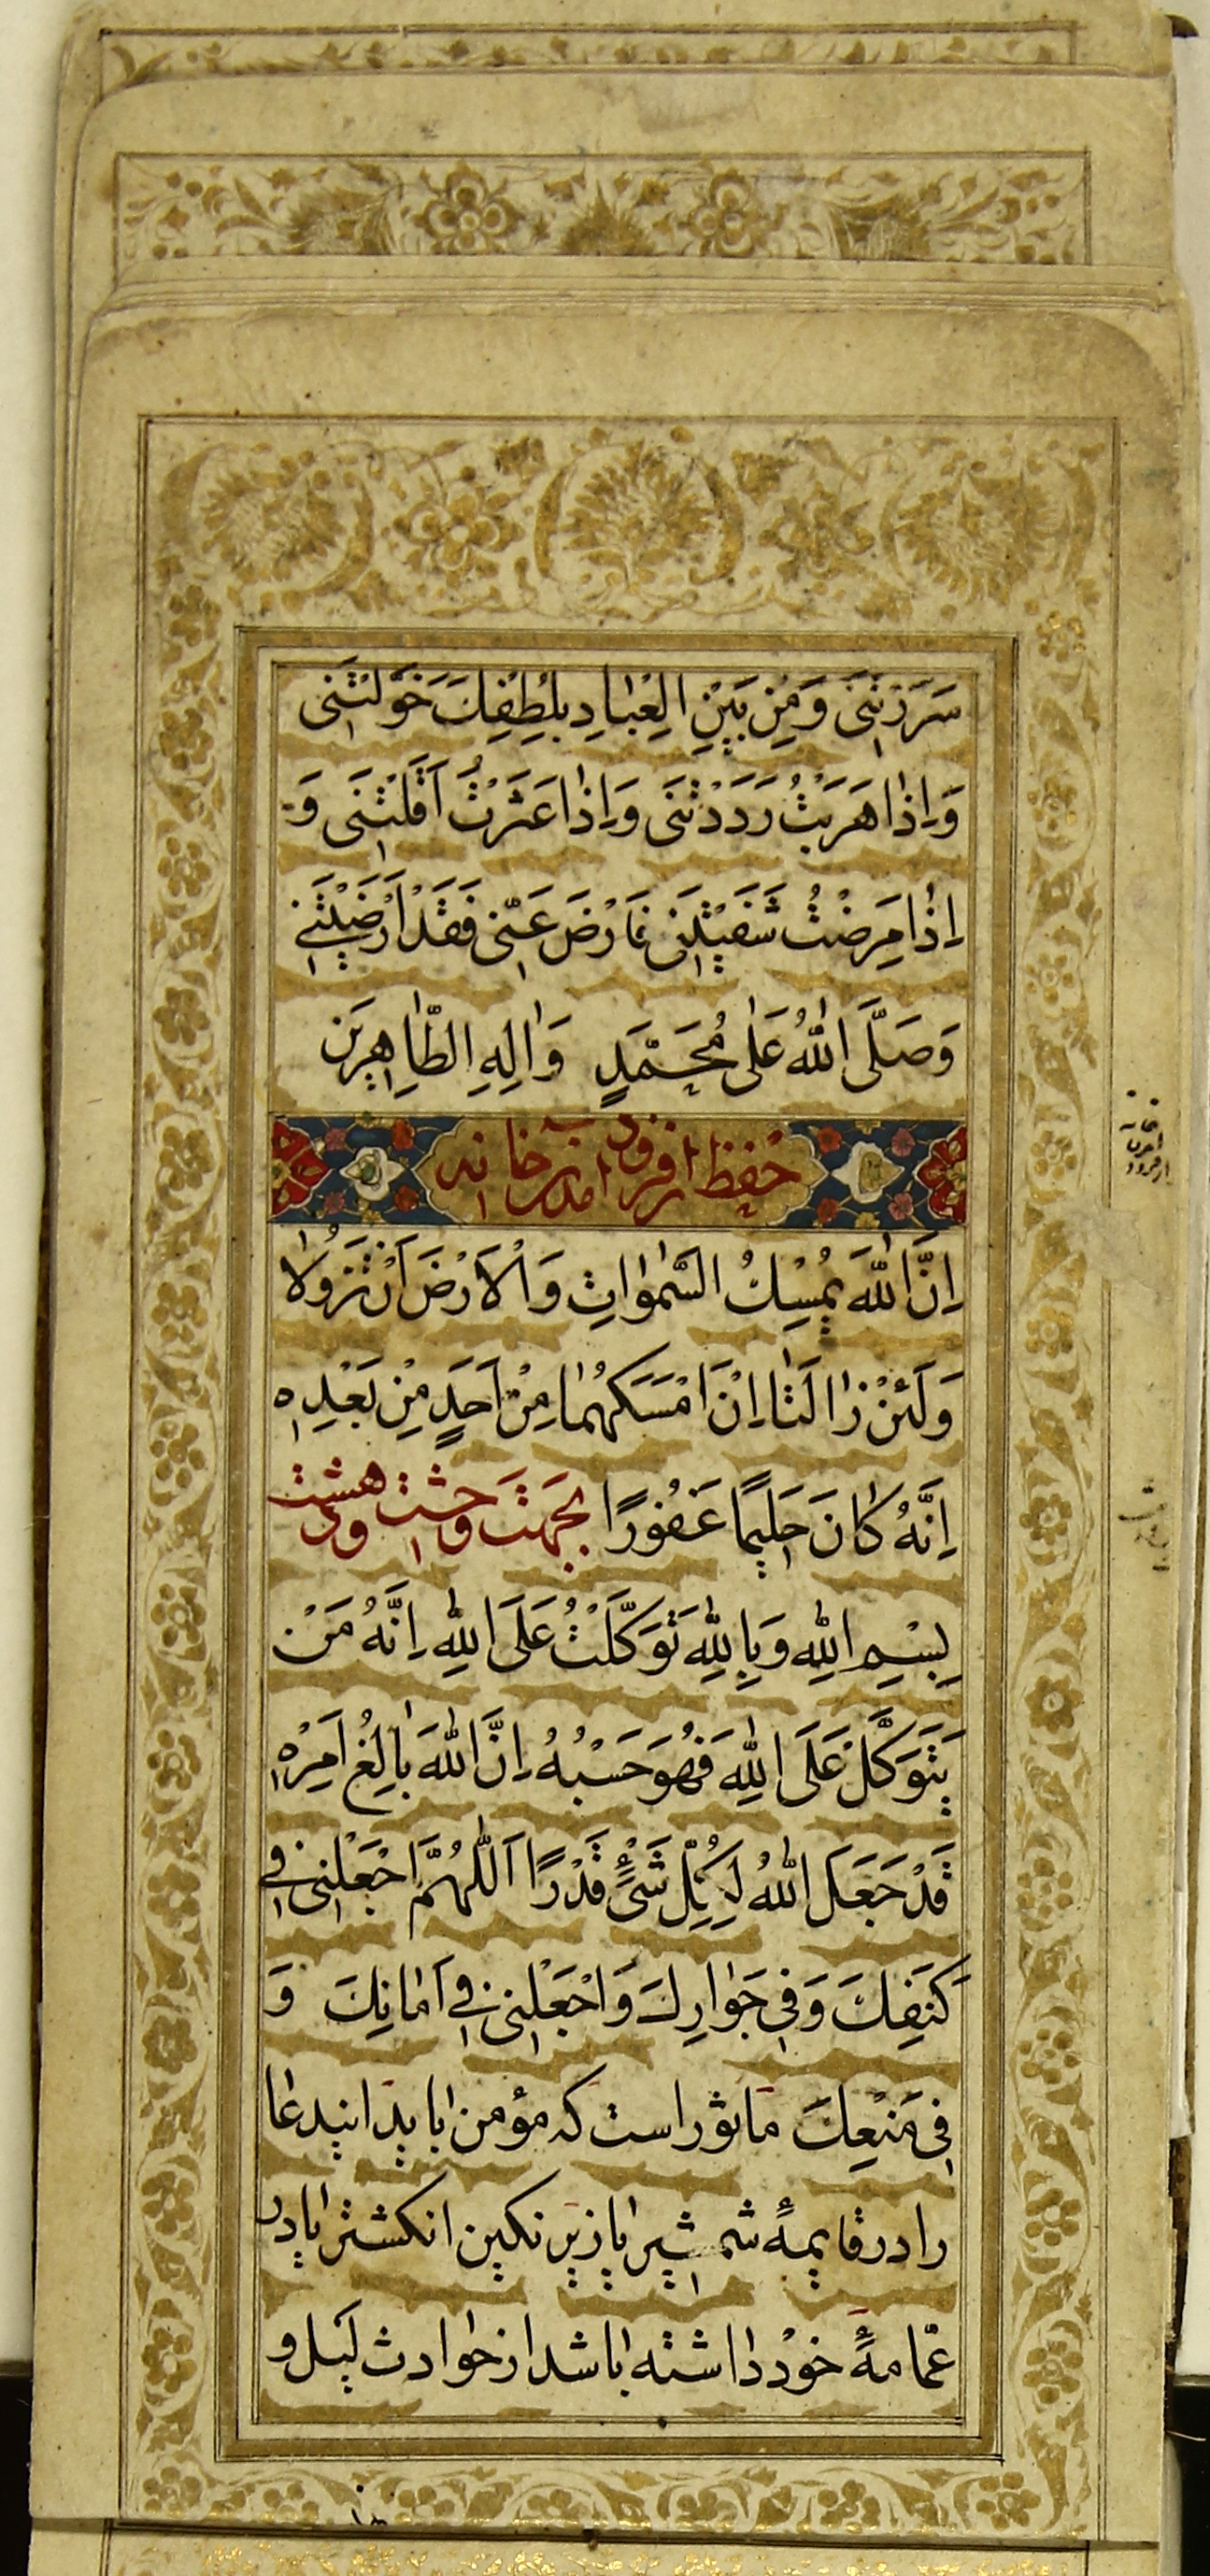 سَرَرْتَنی وَمِنْ بَیْنِ الْعِبٰادِ بِلُطْفِكَ خَوَّلْتَنی
وَاِذٰا هَرَبْتُ رَدَدْتَنی وَاِذٰا عَثَرْتُ اَقَلْتَنی وَ
اِذٰا مَرِضْتُ شَفَیْتَنی فَارْضَ عَنّی فَقَدْ اَرْضَیْتَنی
وَصَلَّی اللّٰهُ عَلٰی مُحَمَّدٍ وَاٰلِهِ الطّٰاهِرینَ
حفظ از فرود آمدن خانه
اِنَّ اللّٰهَ یُمْسِكُ السَّمٰوٰاتِ وَالْاَرْضَ اَنْ تَزُولٰا
وَلَئِنْ زٰالَتٰا اِنْ اَمْسَكَهُمٰا مِنْ اَحَدٍ مِنْ بَعْدِهِ
اِنَّهُ كٰانَ حَلیمًا غَفُورًا بجهت وحشت
بِسْمِ اللّٰهِ وَبِاللّٰهِ تَوَكَّلْتُ عَلَی اللّٰهِ اِنَّهُ مَنْ
یَتَوَكَّلْ عَلَی اللّٰهِ فَهُوَ حَسْبُهُ اِنَّ اللّٰهَ بٰالِغُ اَمْرِهِ
قَدْ جَعَلَ اللّٰهُ لِكُلِّ شَیْءٍ قَدْرًا اَللّٰهُمَّ اجْعَلْنی فی
كَنَفِكَ وَفی جَوٰارِكَ وَاجْعَلْنی فی اَمٰانِكَ وَ
فی مَنْعِكَ ماثور است که مؤمن باید این دعا
را در قایمهٔ شمشیر یا زیر نکین انکشتر یا در
عمّامهٔ خود داشته باشد از حوادث لیل و